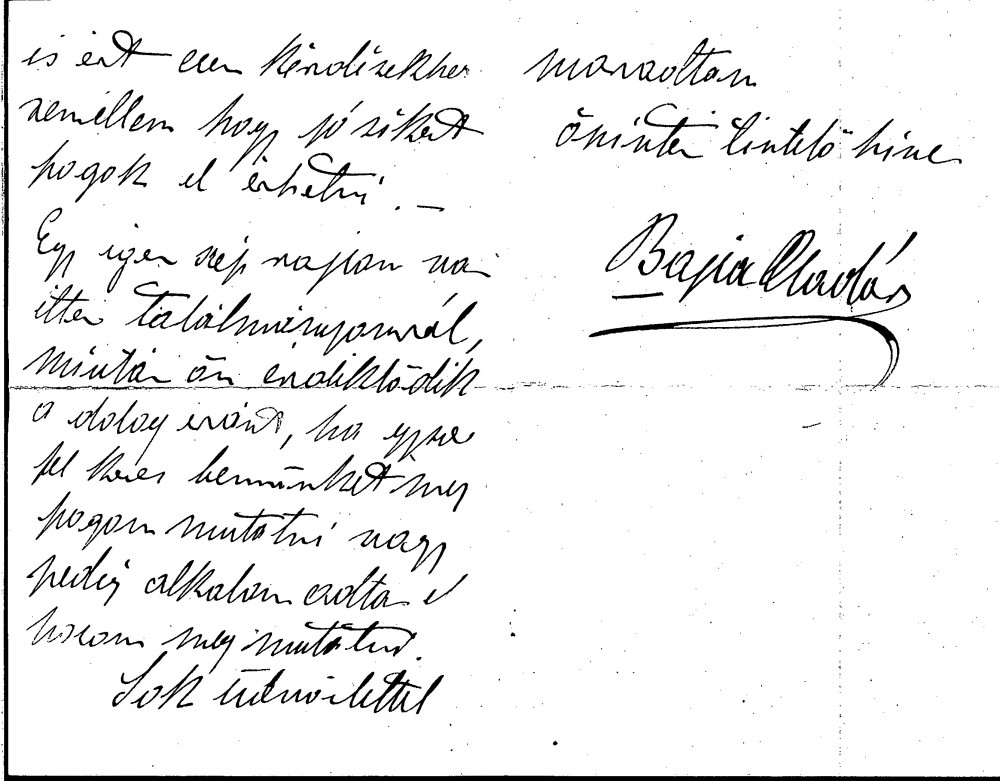 is ért ezen kérdésekhez
remellem hogy jó sikert
fogok el érhetni. —
Egy igen szép rajzom van
itten találmányomról,
mintán ön érdeklődik
a dolog eránt, ha egyszer
fel keres bennünket meg
fogom mutatni vagy
pedig alkalom adtán el
hozom meg mutatni.
Sok üdvözlettel
maradtam
őszintén tisztelő híve
Aladár